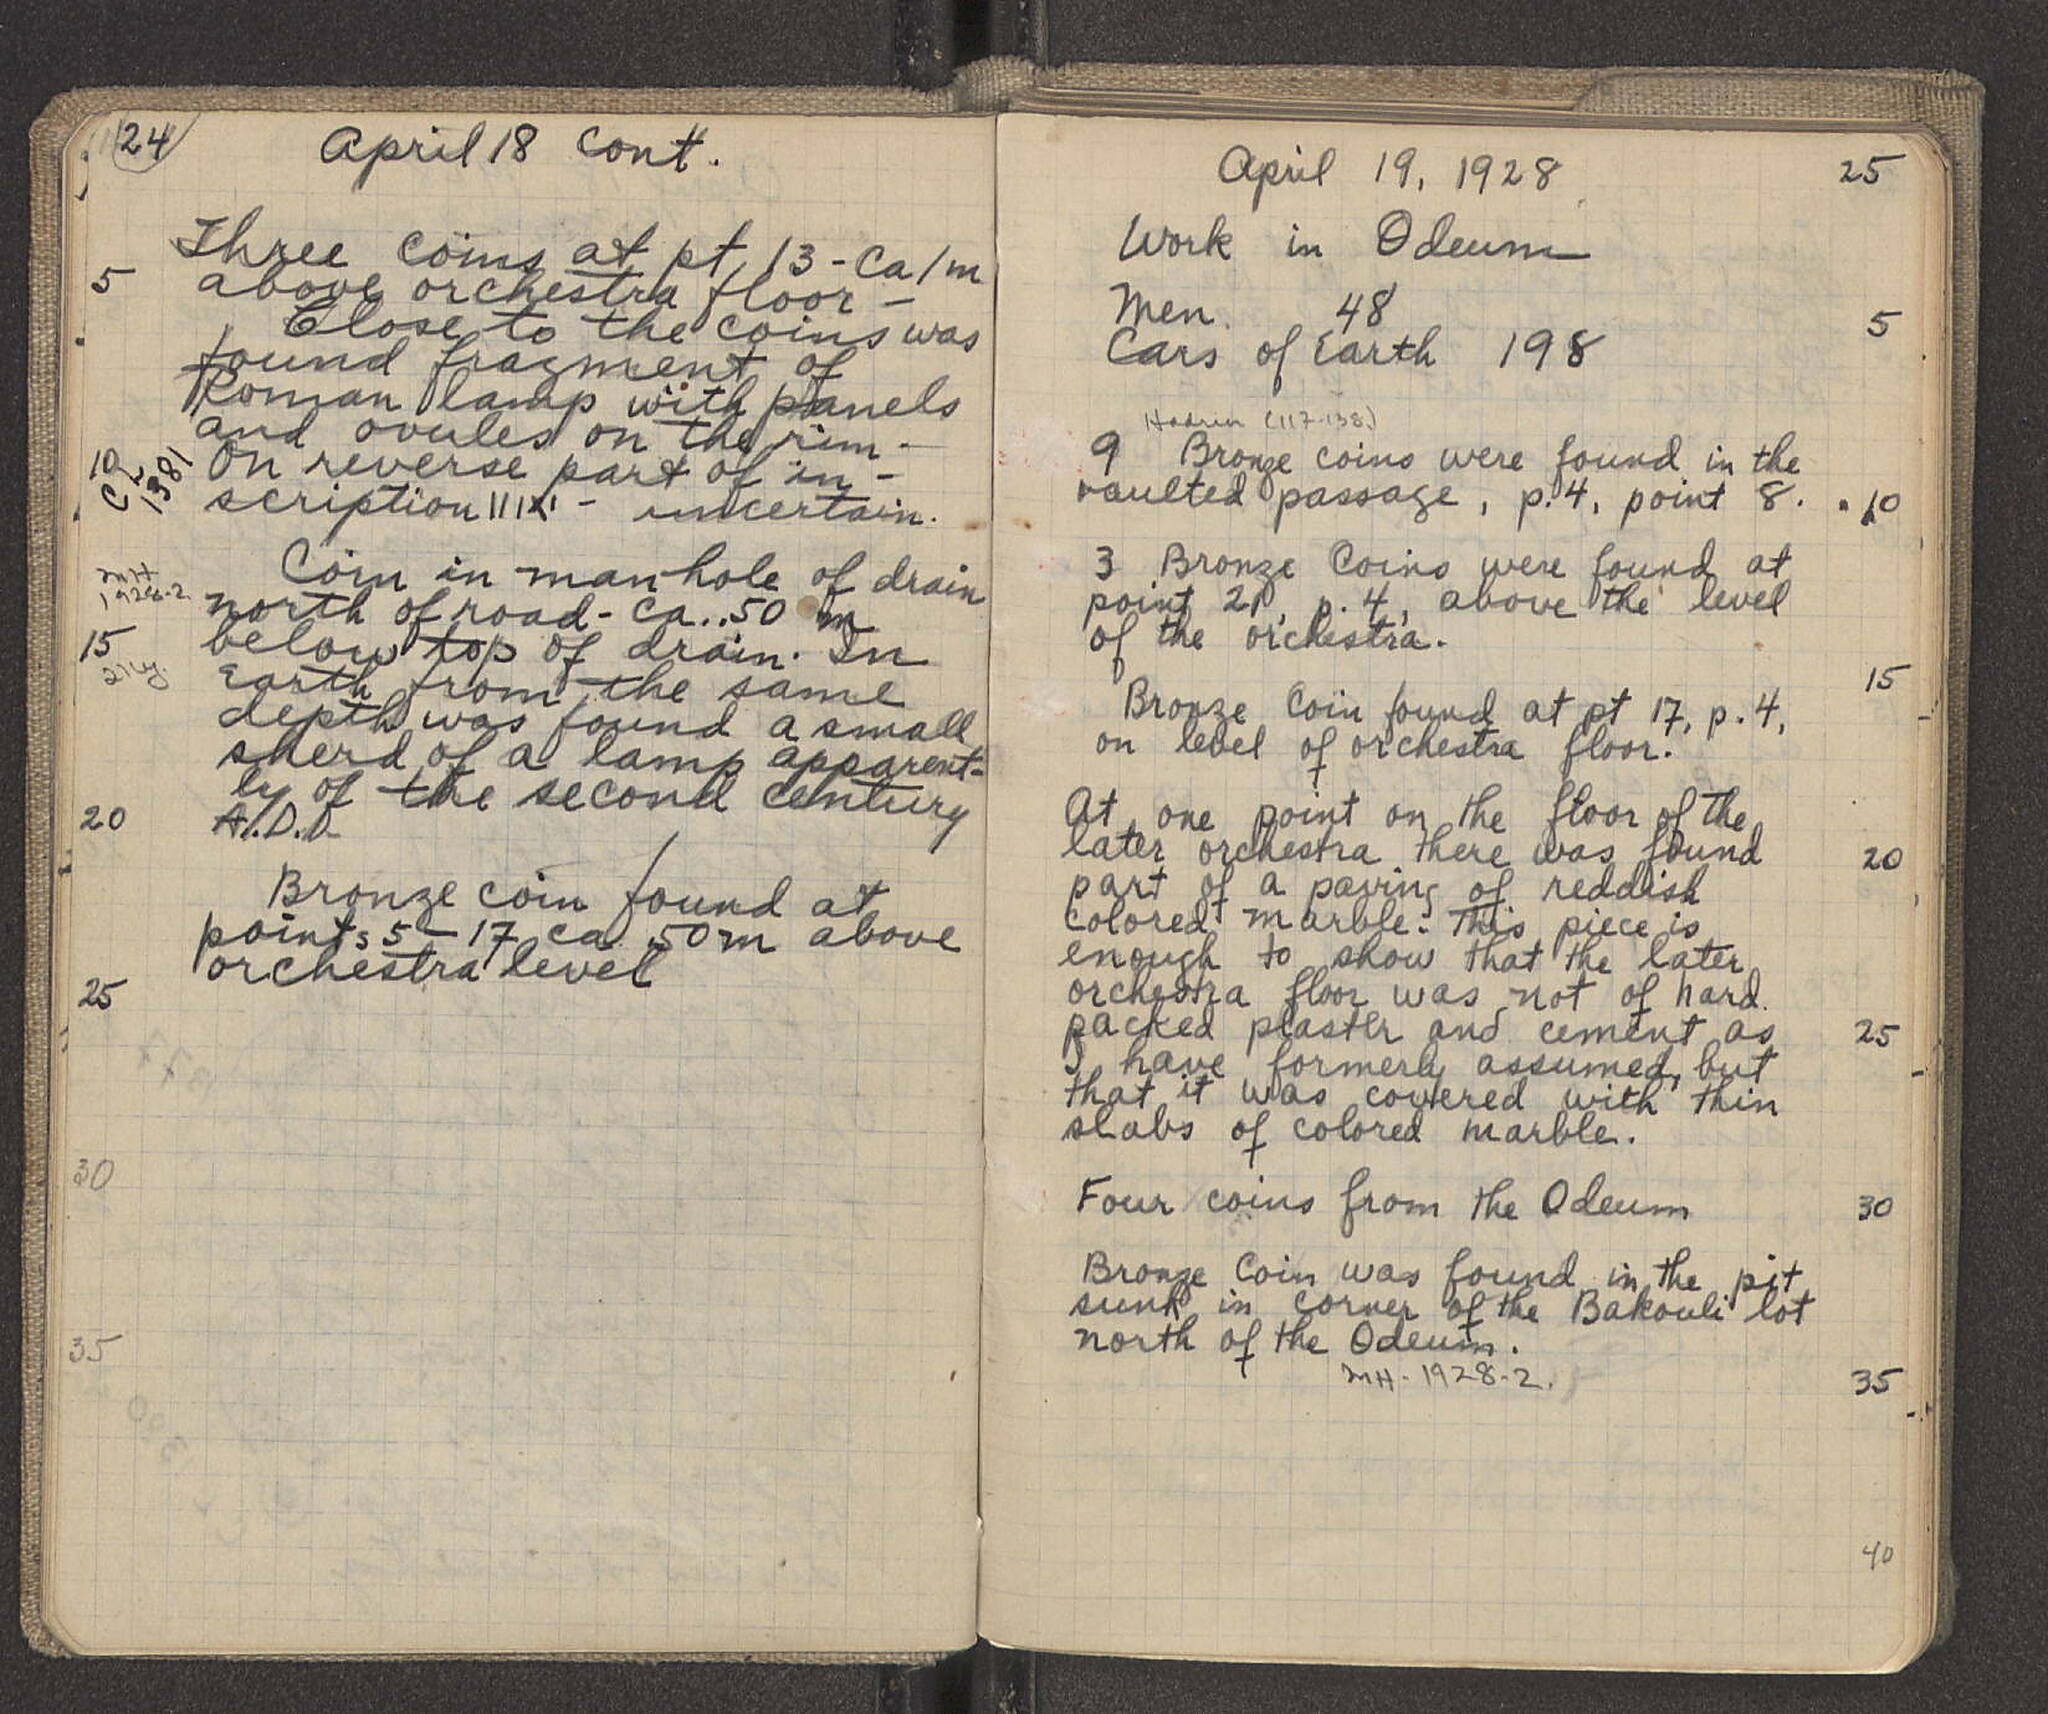 24
April 18 cont.
Three coins at pt. 13 - Ca 1 m
5
above orchestra floor -
Close to the coins was
found fragment of
Roman lamp with panels
and ovules on the rim -
10
CL
1381
On reverse part of in-
scription - uncertain.
Coin in manhole of drain
MH
1928-2
north of road - ca. .50 m
15
below top of drain. In
Earth from the same
depth was found a small
sherd of a lamp apparent-
ly of the second century
20
A.D.
Bronze coin found at
points 5 - 17 ca .50 m above
orchestra level
25
30
35
April 19, 1928
25
Work in Odeum
Men. 48
5
Cars of Earth 198
Hadrian (117-138)
9 Bronze coins were found in the
vaulted passage, p. 4, point 8.
10
3 Bronze Coins were found at
point 21, p. 4, above the level
of the orchestra.
15
Bronze Coin found at pt 17, p. 4,
on level of orchestra floor.
At one point on the floor of the
later orchestra there was found
20
part of a paving of reddish
colored marble. This piece is
enough to show that the later
orchestra floor was not of hard
packed plaster and cement as
25
I have formerly assumed, but
that it was covered with thin
slabs of colored marble.
Four coins from the Odeum
30
Bronze Coin was found in the pit
sunk in corner of the Bakouli lot
north of the Odeum.
MH - 1928-2.
35
40